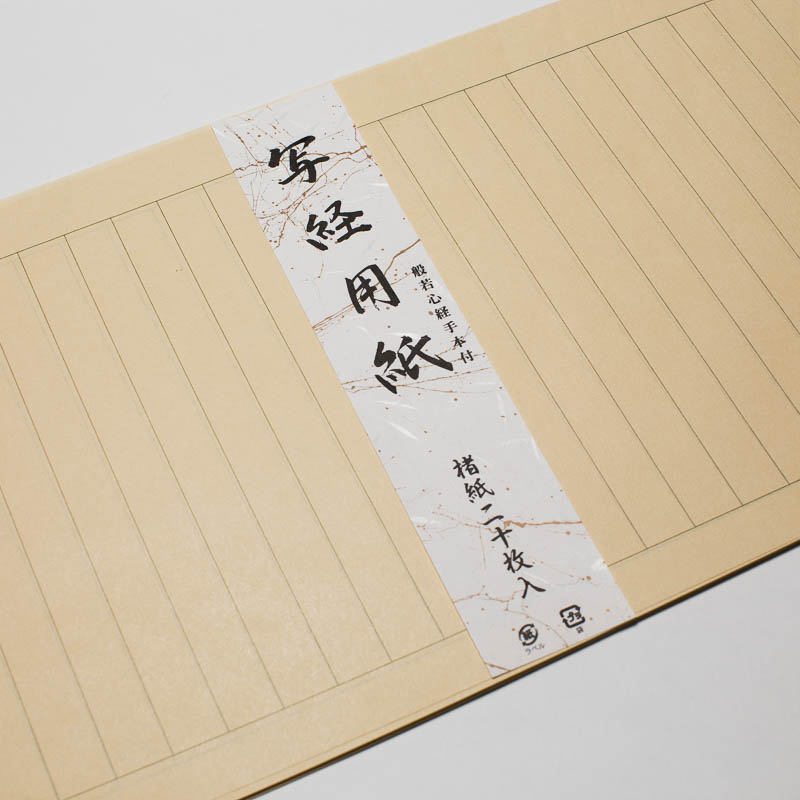 写経用紙
般若心経手本付
楮紙二十枚入
紙
ラベル
プラ
袋